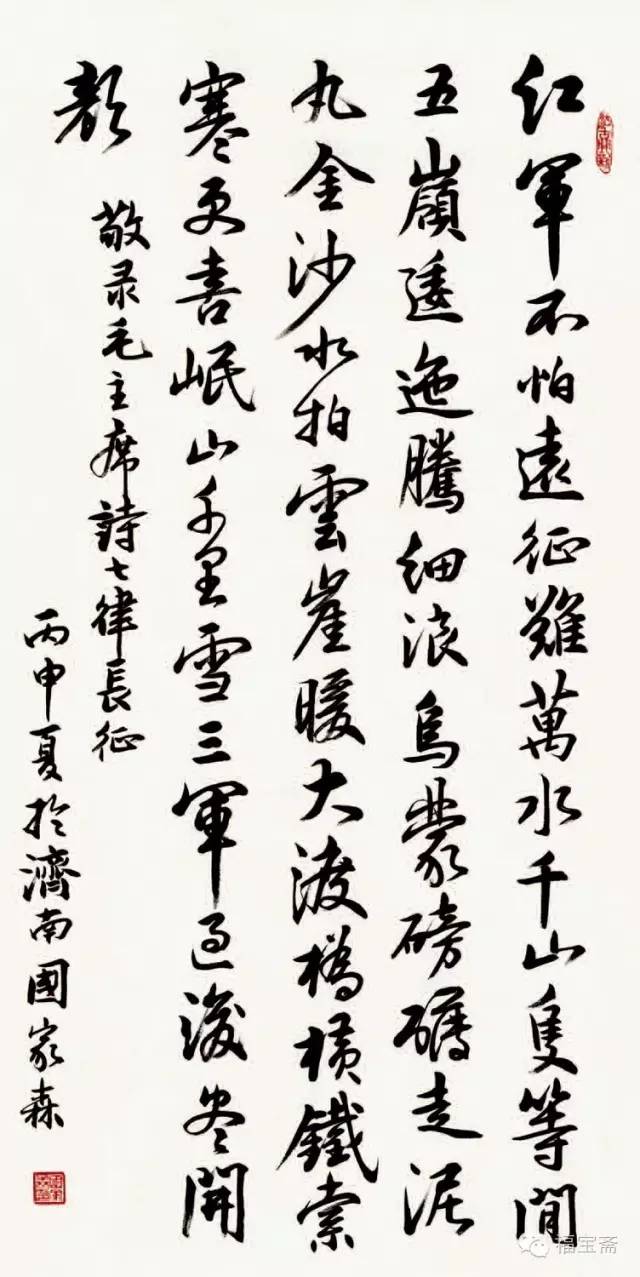 红軍不怕遠征難萬水千山隻等閒
五嶺逶迤騰细浪烏蒙磅礴走泥
丸金沙水拍雲崖暖大渡橋横鐵索
寒更喜岷山千里雪三軍过後尽開
颜
敬录毛主席詩七律長征
丙申夏於濟南國家森
福宝斋